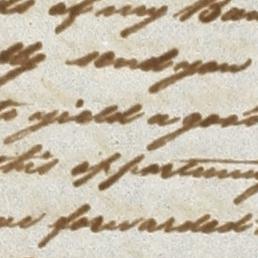 of my Ban
send you
to yield a good
this opportunity
forwarded